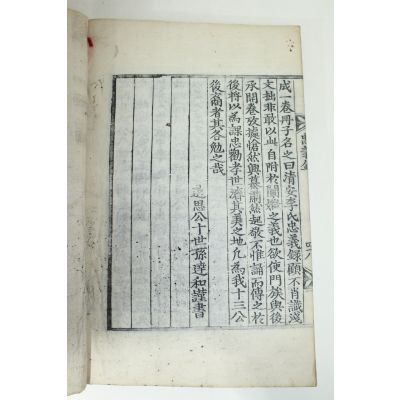 成一卷冊子名之曰淸安李氏忠義錄顧不肖識淺
文拙非敢以此自附於闡
之義也欲使門族與後
承開卷攷據愴然興慕肅然起敬不惟誦而傳之於
後將以爲課忠勸孝世濟其美之地凡爲我十三公
後裔者其各勉之哉
思公十世孫達和謹書
忠義錄